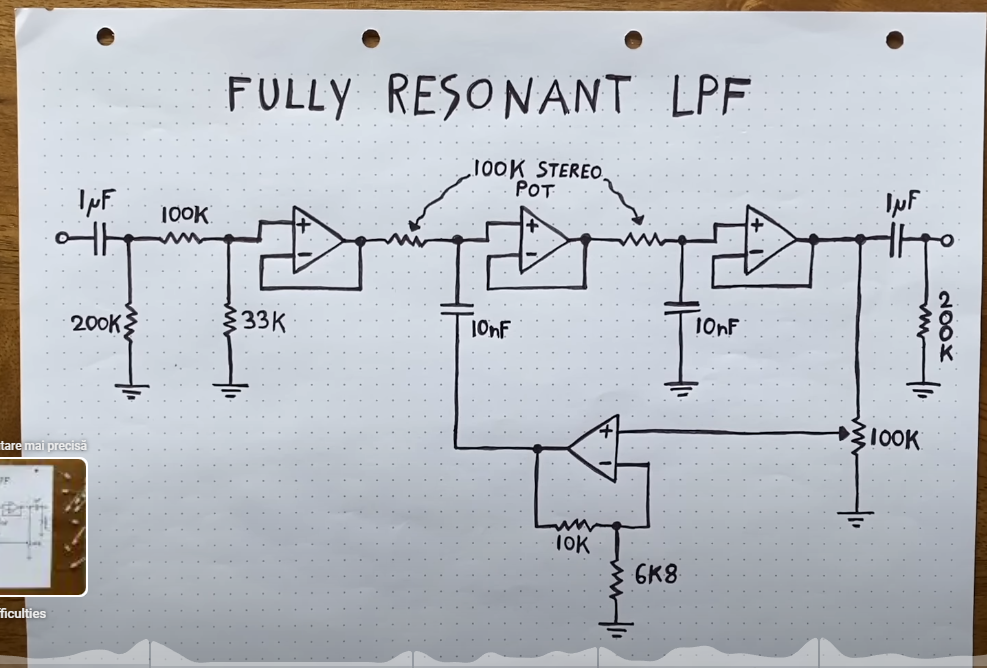 FULLY RESONANT LPF
100K STEREO
POT
1µF
100K
1µF
200K
33K
10nF
10nF
200K
100K
10K
6K8
tare mai precisă
ficulties